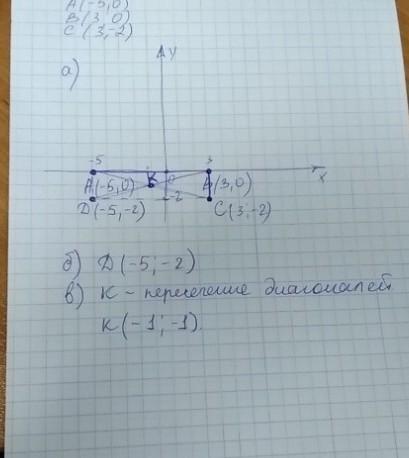 A(-5,0)
B(3,0)
C(3;-2)
а)
y
-5
3
K
0
x
A(-5,0)
B(3,0)
D(-5,-2)
-2
C(3;-2)
б) D(-5;-2)
в) K - пересечение диагоналей
K(-1;-1)